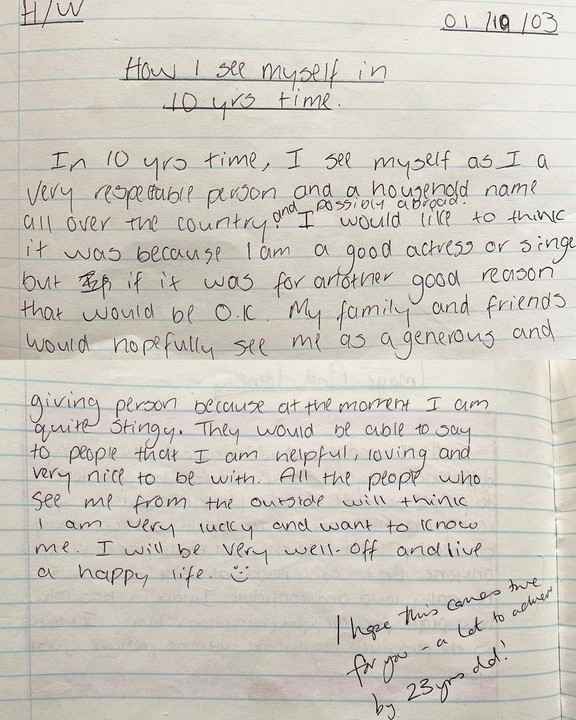 H/W
01/10/03
How I see myself in
10 yrs time.
In 10 yrs time, I see myself as I a
very respectable person and a household name
all over the country and possibly abroad. I would like to think
it was because I am a good actress or singe
but if it was for another good reason
that would be O.K. My family and friends
would hopefully see me as a generous and
giving person because at the moment I am
quite stingy. They would be able to say
to people that I am helpful, loving and
very nice to be with. All the people who
see me from the outside will think
I am very lucky and want to know
me. I will be very well-off and live
a happy life.
I hope this comes true
for you - a lot to achieve
by 23 yrs old!